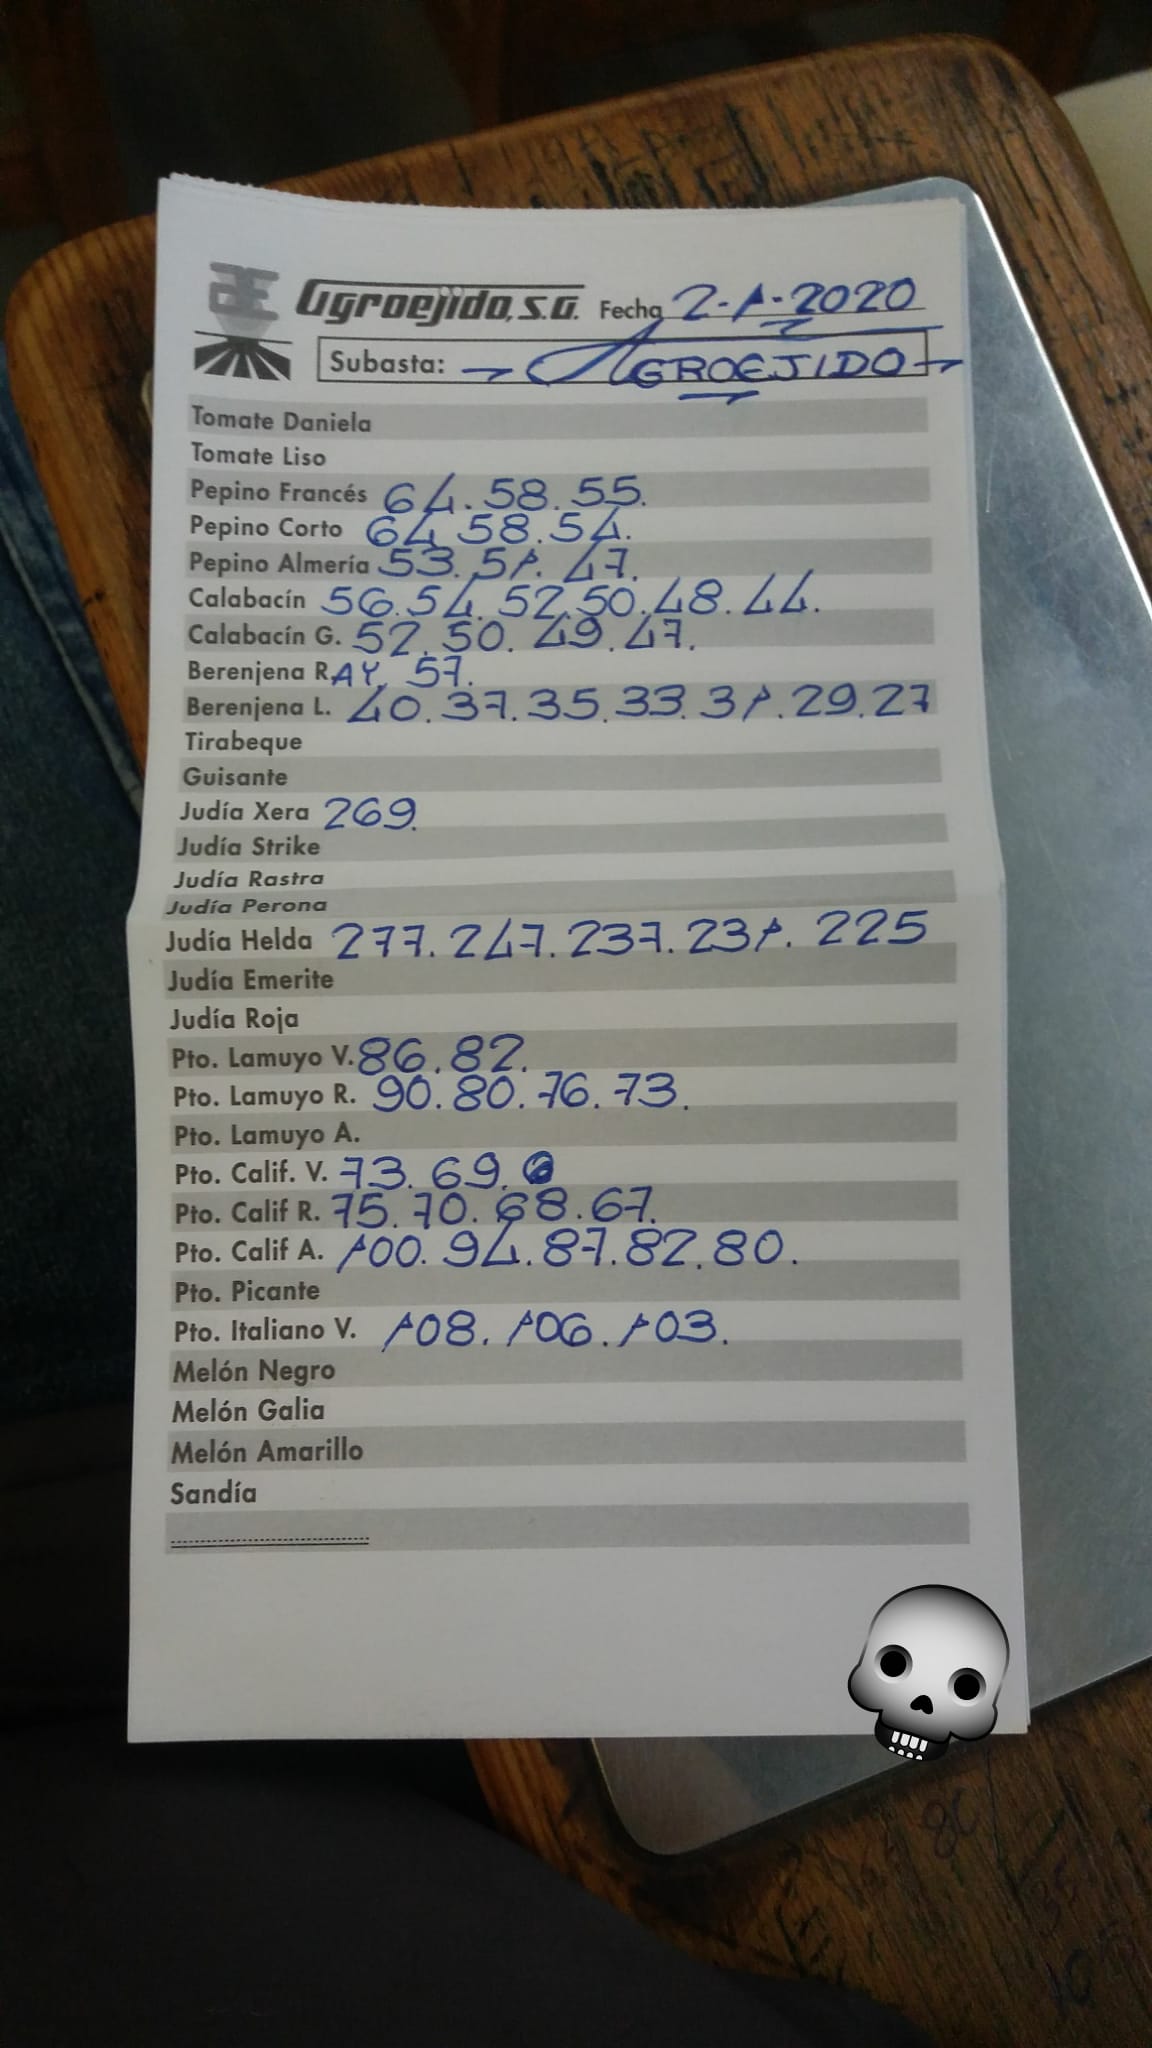 Agroejido, S.A. Fecha 2-1-2020
Subasta: → AGROEJIDO →
Tomate Daniela
Tomate Liso
Pepino Francés 64.58.55.
Pepino Corto 64 58.54.
Pepino Almería 53.51.47.
Calabacín 56.54.52.50.48.44.
Calabacín G. 52.50.49.47.
Berenjena R.AY. 57.
Berenjena L. 40.37.35.33.31.29.27
Tirabeque
Guisante
Judía Xera 269.
Judía Strike
Judía Rastra
Judía Perona
Judía Helda 277.247.237.231.225
Judía Emerite
Judía Roja
Pto. Lamuyo V. 86.82.
Pto. Lamuyo R. 90.80.76.73.
Pto. Lamuyo A.
Pto. Calif. V. 73.69.
Pto. Calif R. 75.70.68.67.
Pto. Calif A. 100.94.87.82.80.
Pto. Picante
Pto. Italiano V. 108.106.103.
Melón Negro
Melón Galia
Melón Amarillo
Sandía